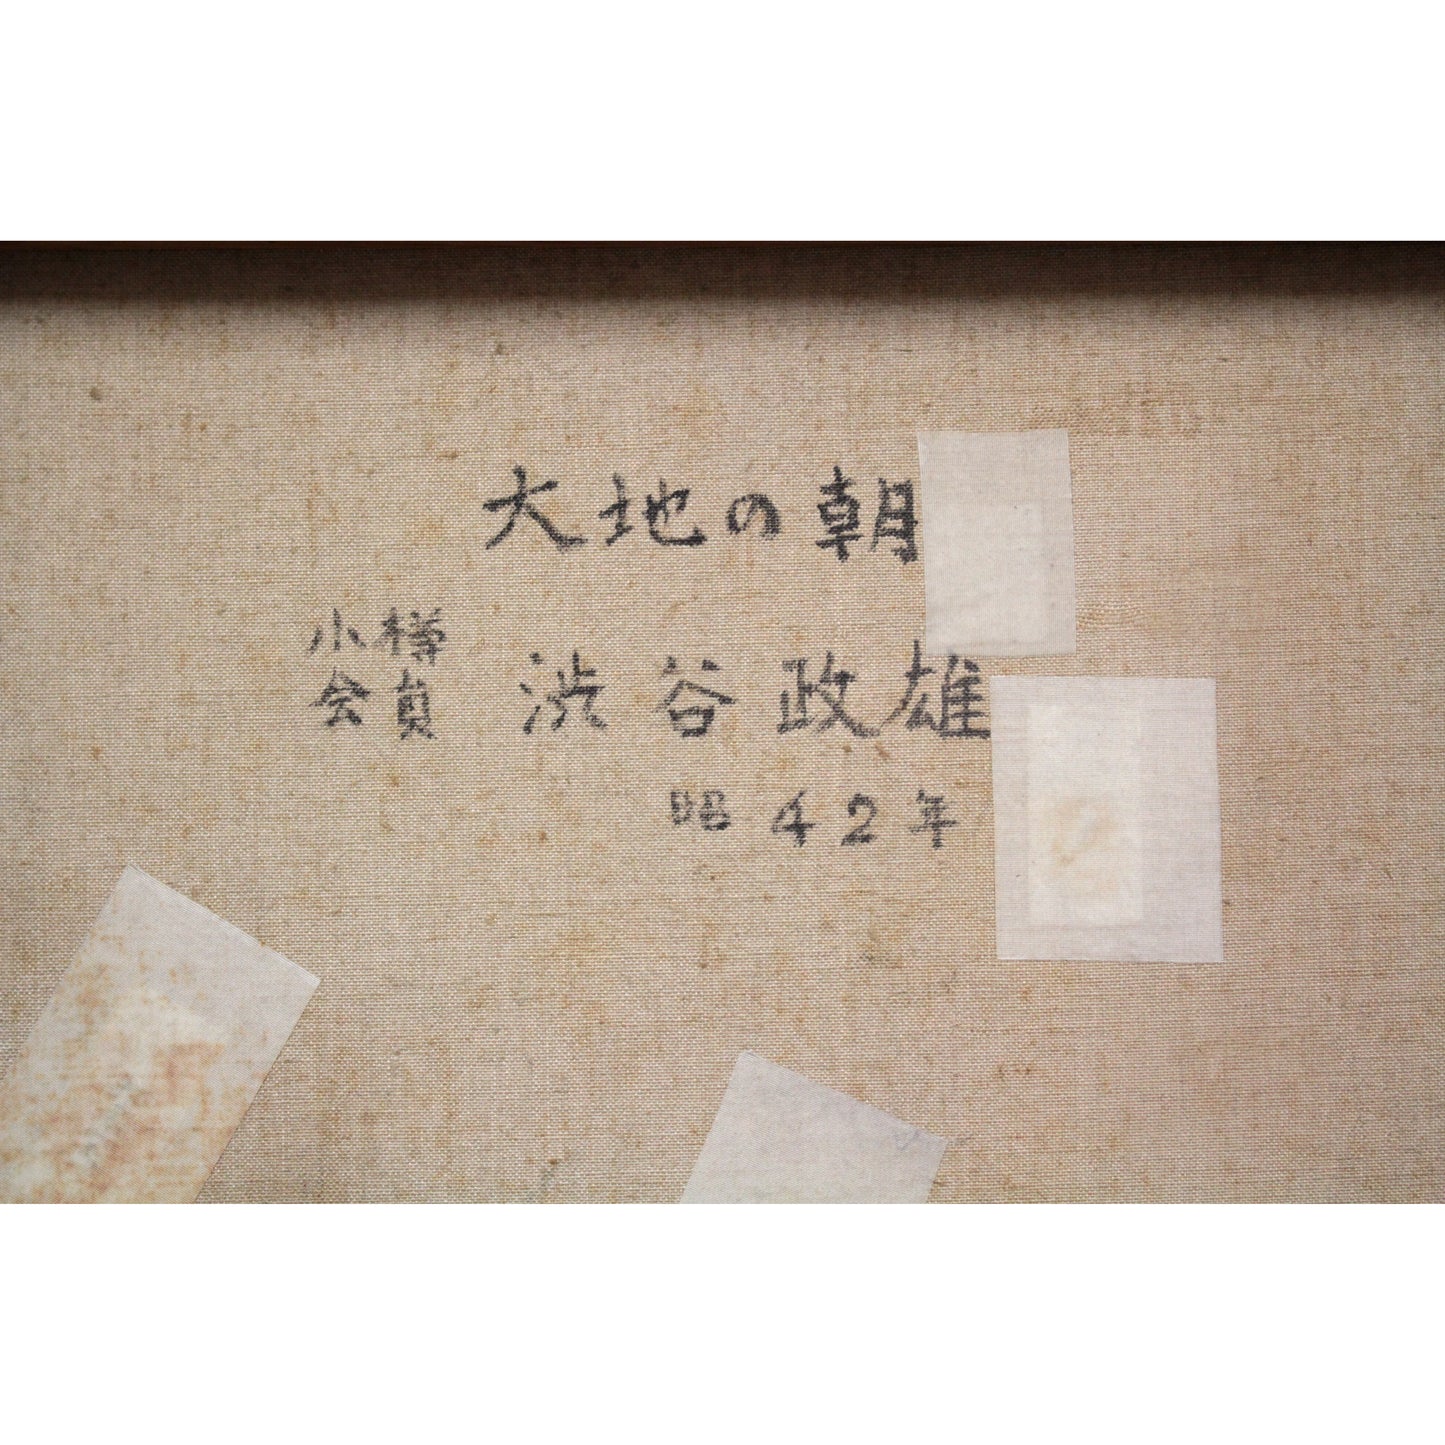 大地の朝
小樽
会員 渋谷政雄
昭42年